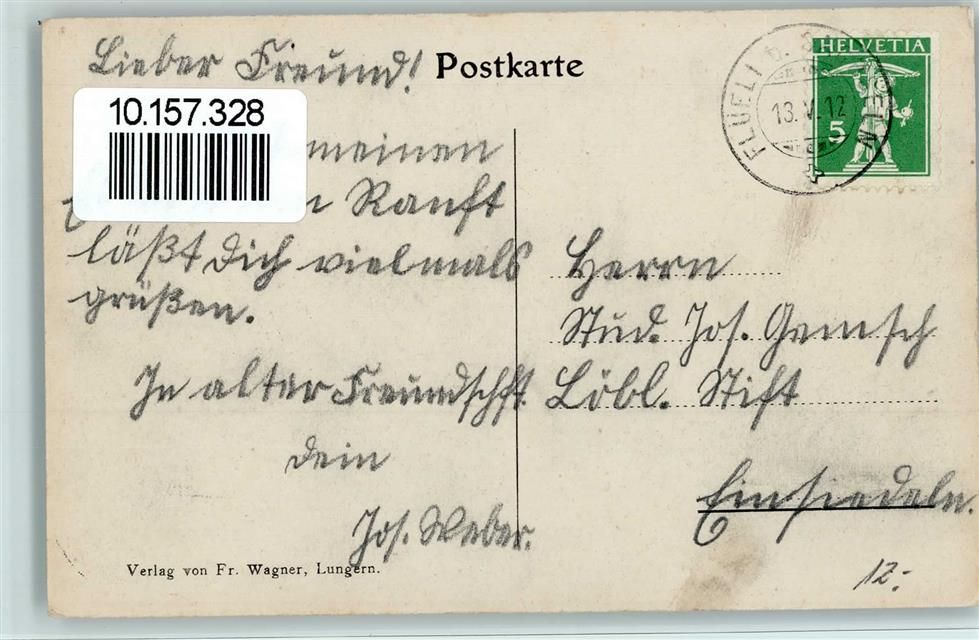 Lieber Freund!
Postkarte
10.157.328
meinen
Ranft
läßt Dich vielmals
grüßen.
In alter Freundschft.
dein
Jos. Weber.
Verlag von Fr. Wagner, Lungern.
FLÜELI b.
13. V. 12
HELVETIA
5
Herrn
Stud. Jos. Gemsch
Löbl. Stift
Einsiedeln.
12.-